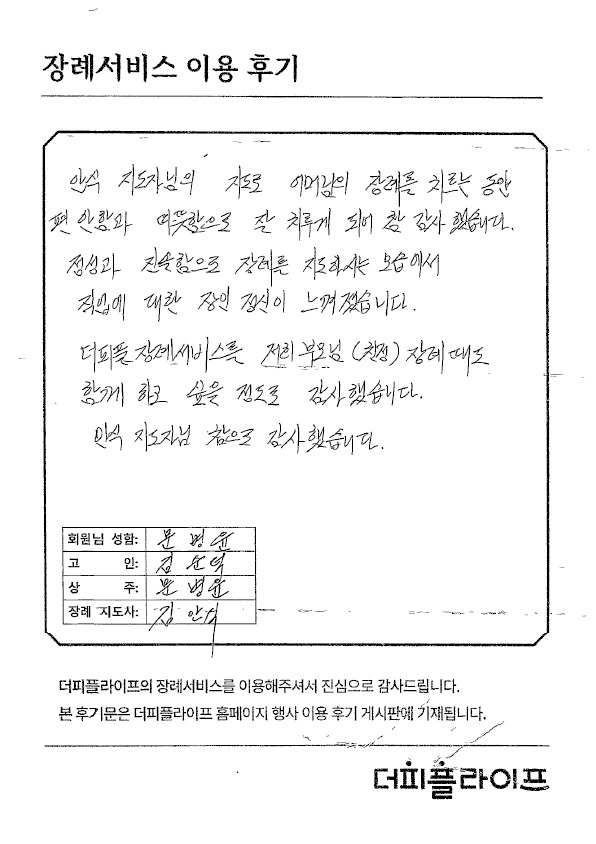 장례서비스 이용 후기
안식 지도자님의 지도로 어머님의 장례를 치르는 동안
편안함과 따뜻함으로 잘 치루게 되어 참 감사했습니다.
정성과 진솔함으로 장례를 지도하시는 모습에서
직업에 대한 장인 정신이 느껴졌습니다.
더피플 장례서비스를 저희 부모님 (친정) 장례 때도
함께 하고 싶을 정도로 감사했습니다.
안식 지도자님 참으로 감사했습니다.
회원님 성함: 문병윤
고 인: 김순덕
상 주: 문병윤
장례 지도사: 김안식
더피플라이프의 장례서비스를 이용해주셔서 진심으로 감사드립니다.
본 후기문은 더피플라이프 홈페이지 행사 이용 후기 게시판에 기재됩니다.
더피플라이프